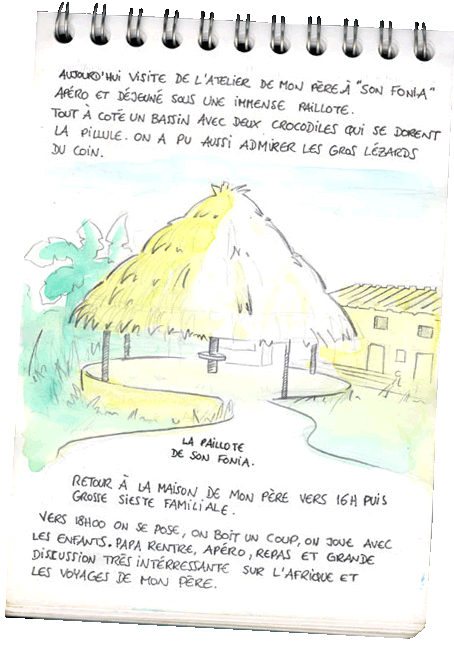 AUJOURD'HUI VISITE DE L'ATELIER DE MON PÈRE À "SON FONIA"
APÉRO ET DÉJEUNÉ SOUS UNE IMMENSE PAILLOTE.
TOUT À COTÉ UN BASSIN AVEC DEUX CROCODILES QUI SE DORENT
LA PILLULE. ON A PU AUSSI ADMIRER LES GROS LÉZARDS
DU COIN.
LA PAILLOTE
DE SON FONIA.
RETOUR À LA MAISON DE MON PÈRE VERS 16H PUIS
GROSSE SIESTE FAMILIALE.
VERS 18H00 ON SE POSE, ON BOIT UN COUP, ON JOUE AVEC
LES ENFANTS. PAPA RENTRE, APÉRO, REPAS ET GRANDE
DISCUSSION TRÈS INTÉRRESSANTE SUR L'AFRIQUE ET
LES VOYAGES DE MON PÈRE.